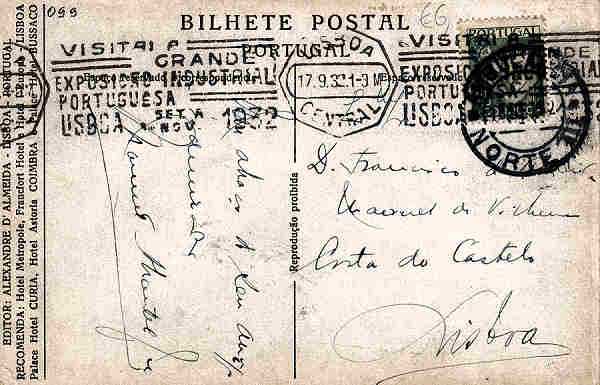 099
BILHETE POSTAL
PORTUGAL
VISITAI A
GRANDE
EXPOSIÇÃO INDUSTRIAL
PORTUGUESA
LISBOA SET. A NOV. 1932
LISBOA
17.9.32.1-9 M
CENTRAL
VISITAI A
GRANDE
EXPOSIÇÃO
PORTUGUESA
LISBOA
PORTUGAL
NORTE
66
Espaço reservado á correspondencia
Espaço reservado
EDITOR: ALEXANDRE D'ALMEIDA - LISBOA - PORTUGAL
RECOMENDA: Hotel Metropole, Francfort Hotel e Hotel L'Europe - LISBOA
Palace Hotel CURIA, Hotel Astoria COIMBRA e Palace Hotel BUSSACO
Reprodução proibida
Um abraço do seu amigo
Manuel
D. Francisco
Manuel de Vilhena
Costa do Castelo
Lisboa